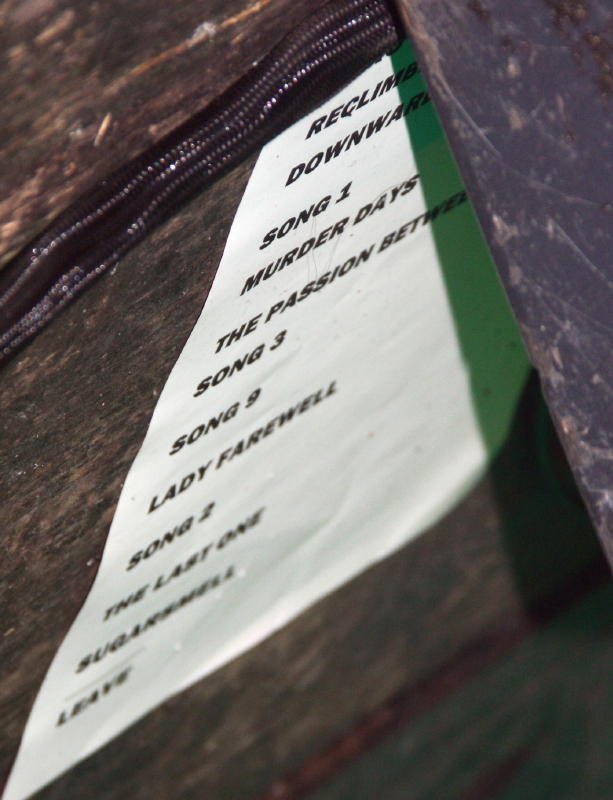 RECLIMB
DOWNWARD
SONG 1
MURDER DAYS
THE PASSION BETWEE
SONG 3
SONG 9
LADY FAREWELL
SONG 2
THE LAST ONE
SUGARSMELL
LEAVE